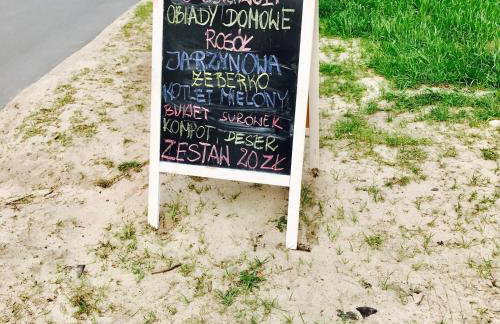 OBIADY DOMOWE
ROSÓŁ
JARZYNOWA
ŻEBERKO
KOTLET MIELONY
BUKIET SURÓWEK
KOMPOT DESER
ZESTAW 20 ZŁ